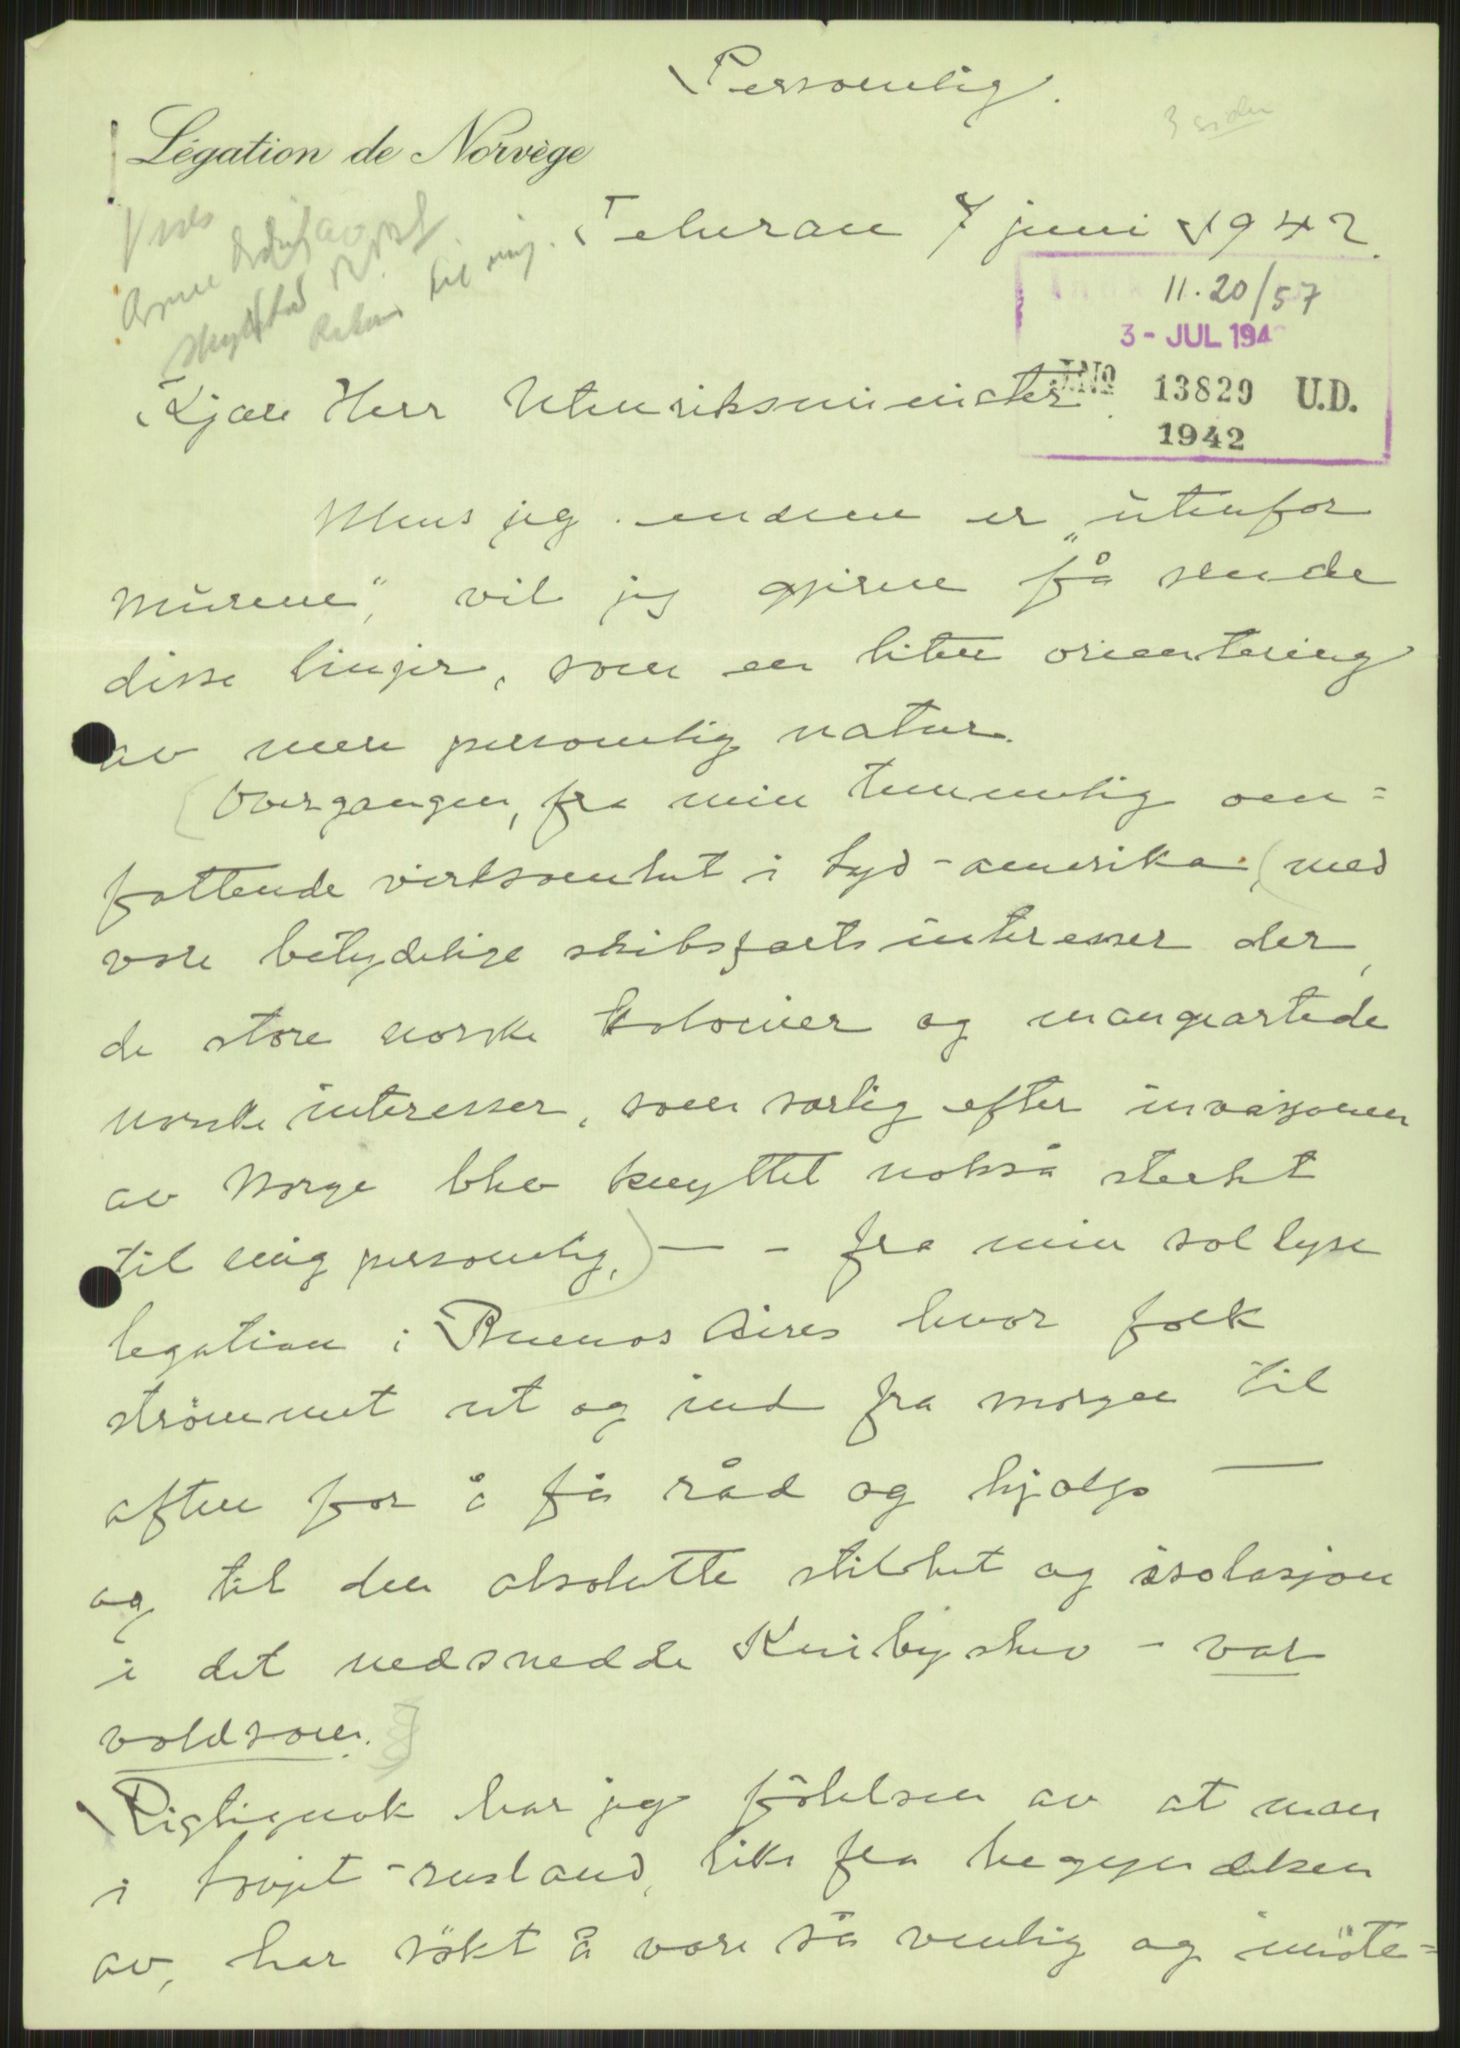 Personlig.
3 sider
Légation de Norvège
Teheran 7 juni 1942.
11.20/57
3 - JUL 194
J.No 13829 U.D.
1942
til mig.
Kjære Herr Utenriksminister.
Mens jeg endnu er „utenfor
murene", vil jeg gjerne få sende
disse linjer, som en liten orientering
av mere personlig natur.
Overgangen, fra min temmelig om=
fattende virksomhet i Syd-amerika, (med
våre betydelige skibsfartsinteresser der,
de store norske kolonier og mangeartede
norske interesser, som særlig efter invasjonen
av Norge blev knyttet nokså sterkt
til mig personlig,) — - fra min sollyse
legation i Buenos Aires hvor folk
strømmet ut og ind fra morgen til
aften for å få råd og hjælp —
og til den absolutte stilhet og isolasjon
i det nedsnedde Kuibyshev - var
voldsom.
Rigtignok har jeg følelsen av at man
i Sovjet-rusland, like fra begyndelsen
av, har søkt å være så venlig og imøte=